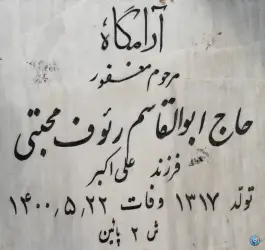 آرامگاه
مرحوم مغفور
حاج ابوالقاسم رئوف مجتبی
فرزند علی اکبر
تولد ۱۳۱۷ وفات ۱۴۰۰٫۵٫۲۲
ش ۲ پائین